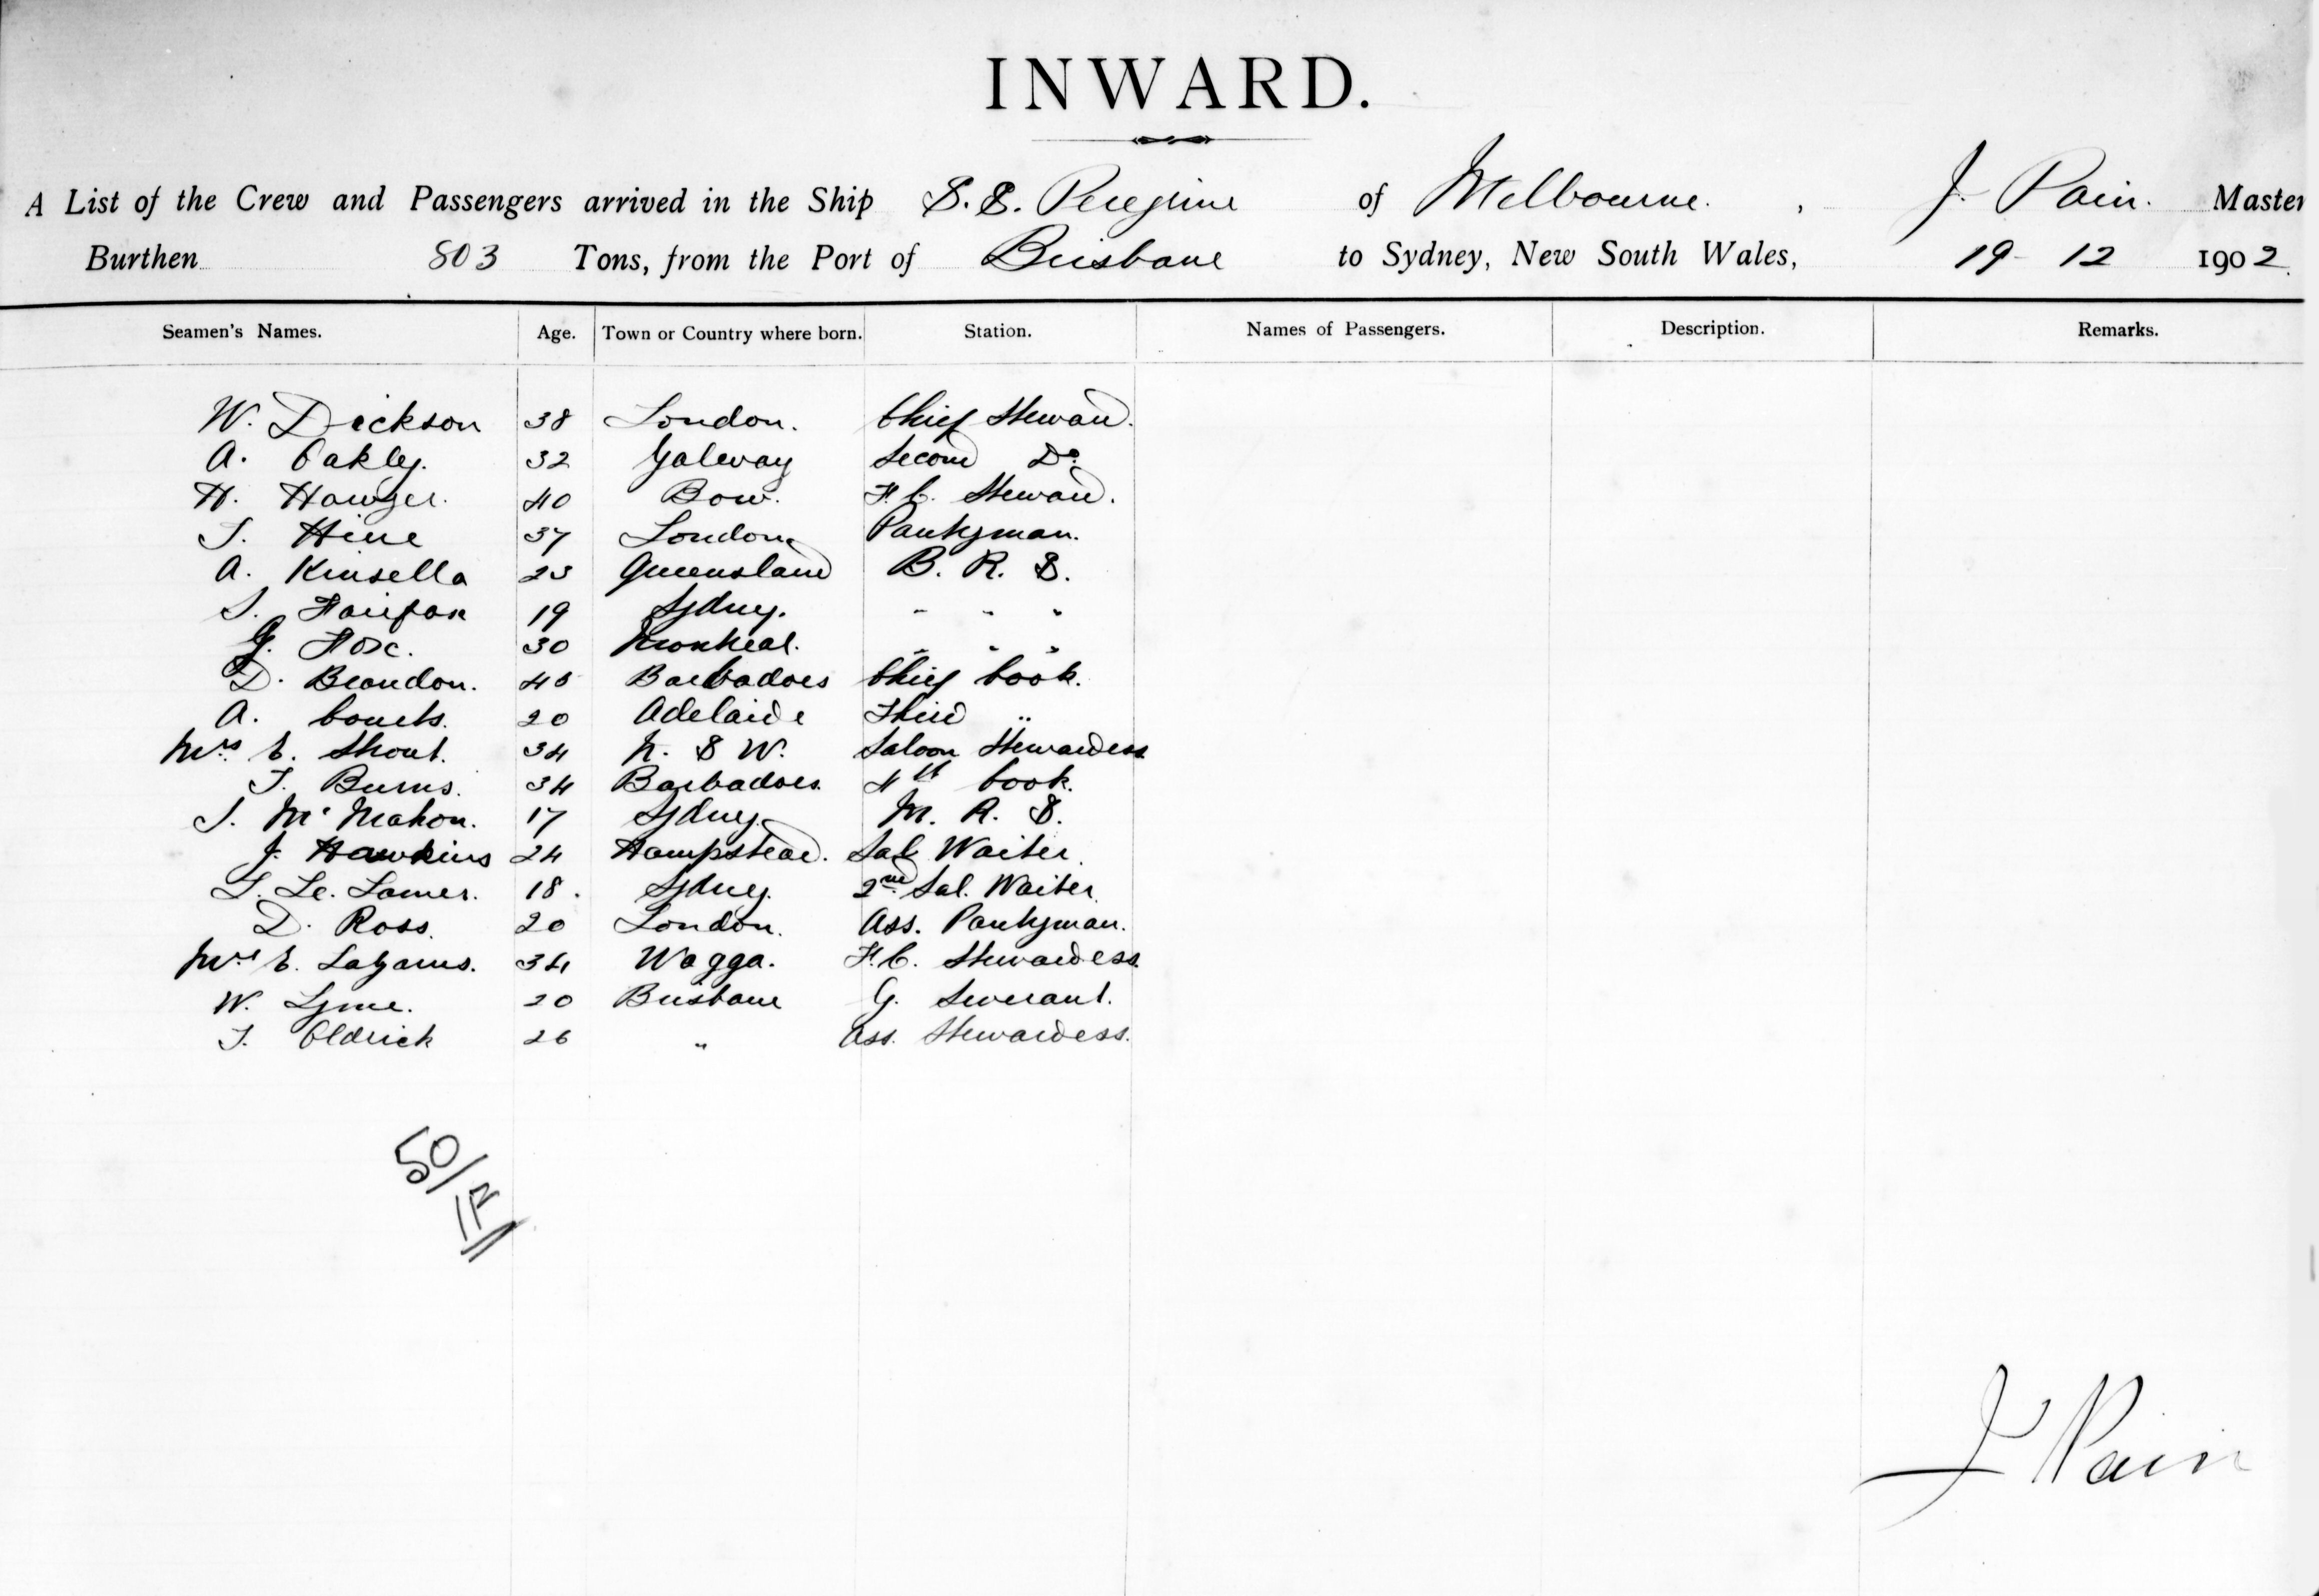 INWARD.
A List of the Crew and Passengers arrived in the Ship S.S. Peregrine of Melbourne. , J. Pain. Master
Burthen 803 Tons, from the Port of Brisbane to Sydney, New South Wales, 19 - 12 1902.
Seamen's Names. Age. Town or Country where born. Station. Names of Passengers. Description. Remarks.
W. Dickson 38 London. Chief Steward.
A. Oakley. 32 Galway Second Do.
H. 40 Bow. F.C. Steward.
S. Hine 37 London. Pantryman.
A. Kinsella 23 Queensland B. R. S.
S. Fairfax 19 Sydney. " " "
G. Fox. 30 Montreal. " " "
D. Brandon. Barbadoes Chief Cook.
A. 20 Adelaide Third "
Mrs E. Shout. 34 N. S W. Saloon Stewardess
T. Burns. 34 Barbadoes. 4th Cook.
J. McMahon. 17 Sydney. M. R. S.
J. Hawkins 24 Hampstead. Sal. Waiter.
Le. 18. Sydney. 2nd Sal. Waiter.
D. Ross. 20 London. Ass. Pantryman.
Mrs E. Lazarus. 34 Wagga. F.C. Stewardess.
W. Lyme. 20 Brisbane G. Serverant.
T. Oldrick 26 " Ass. Stewardess.
50/
J Pain